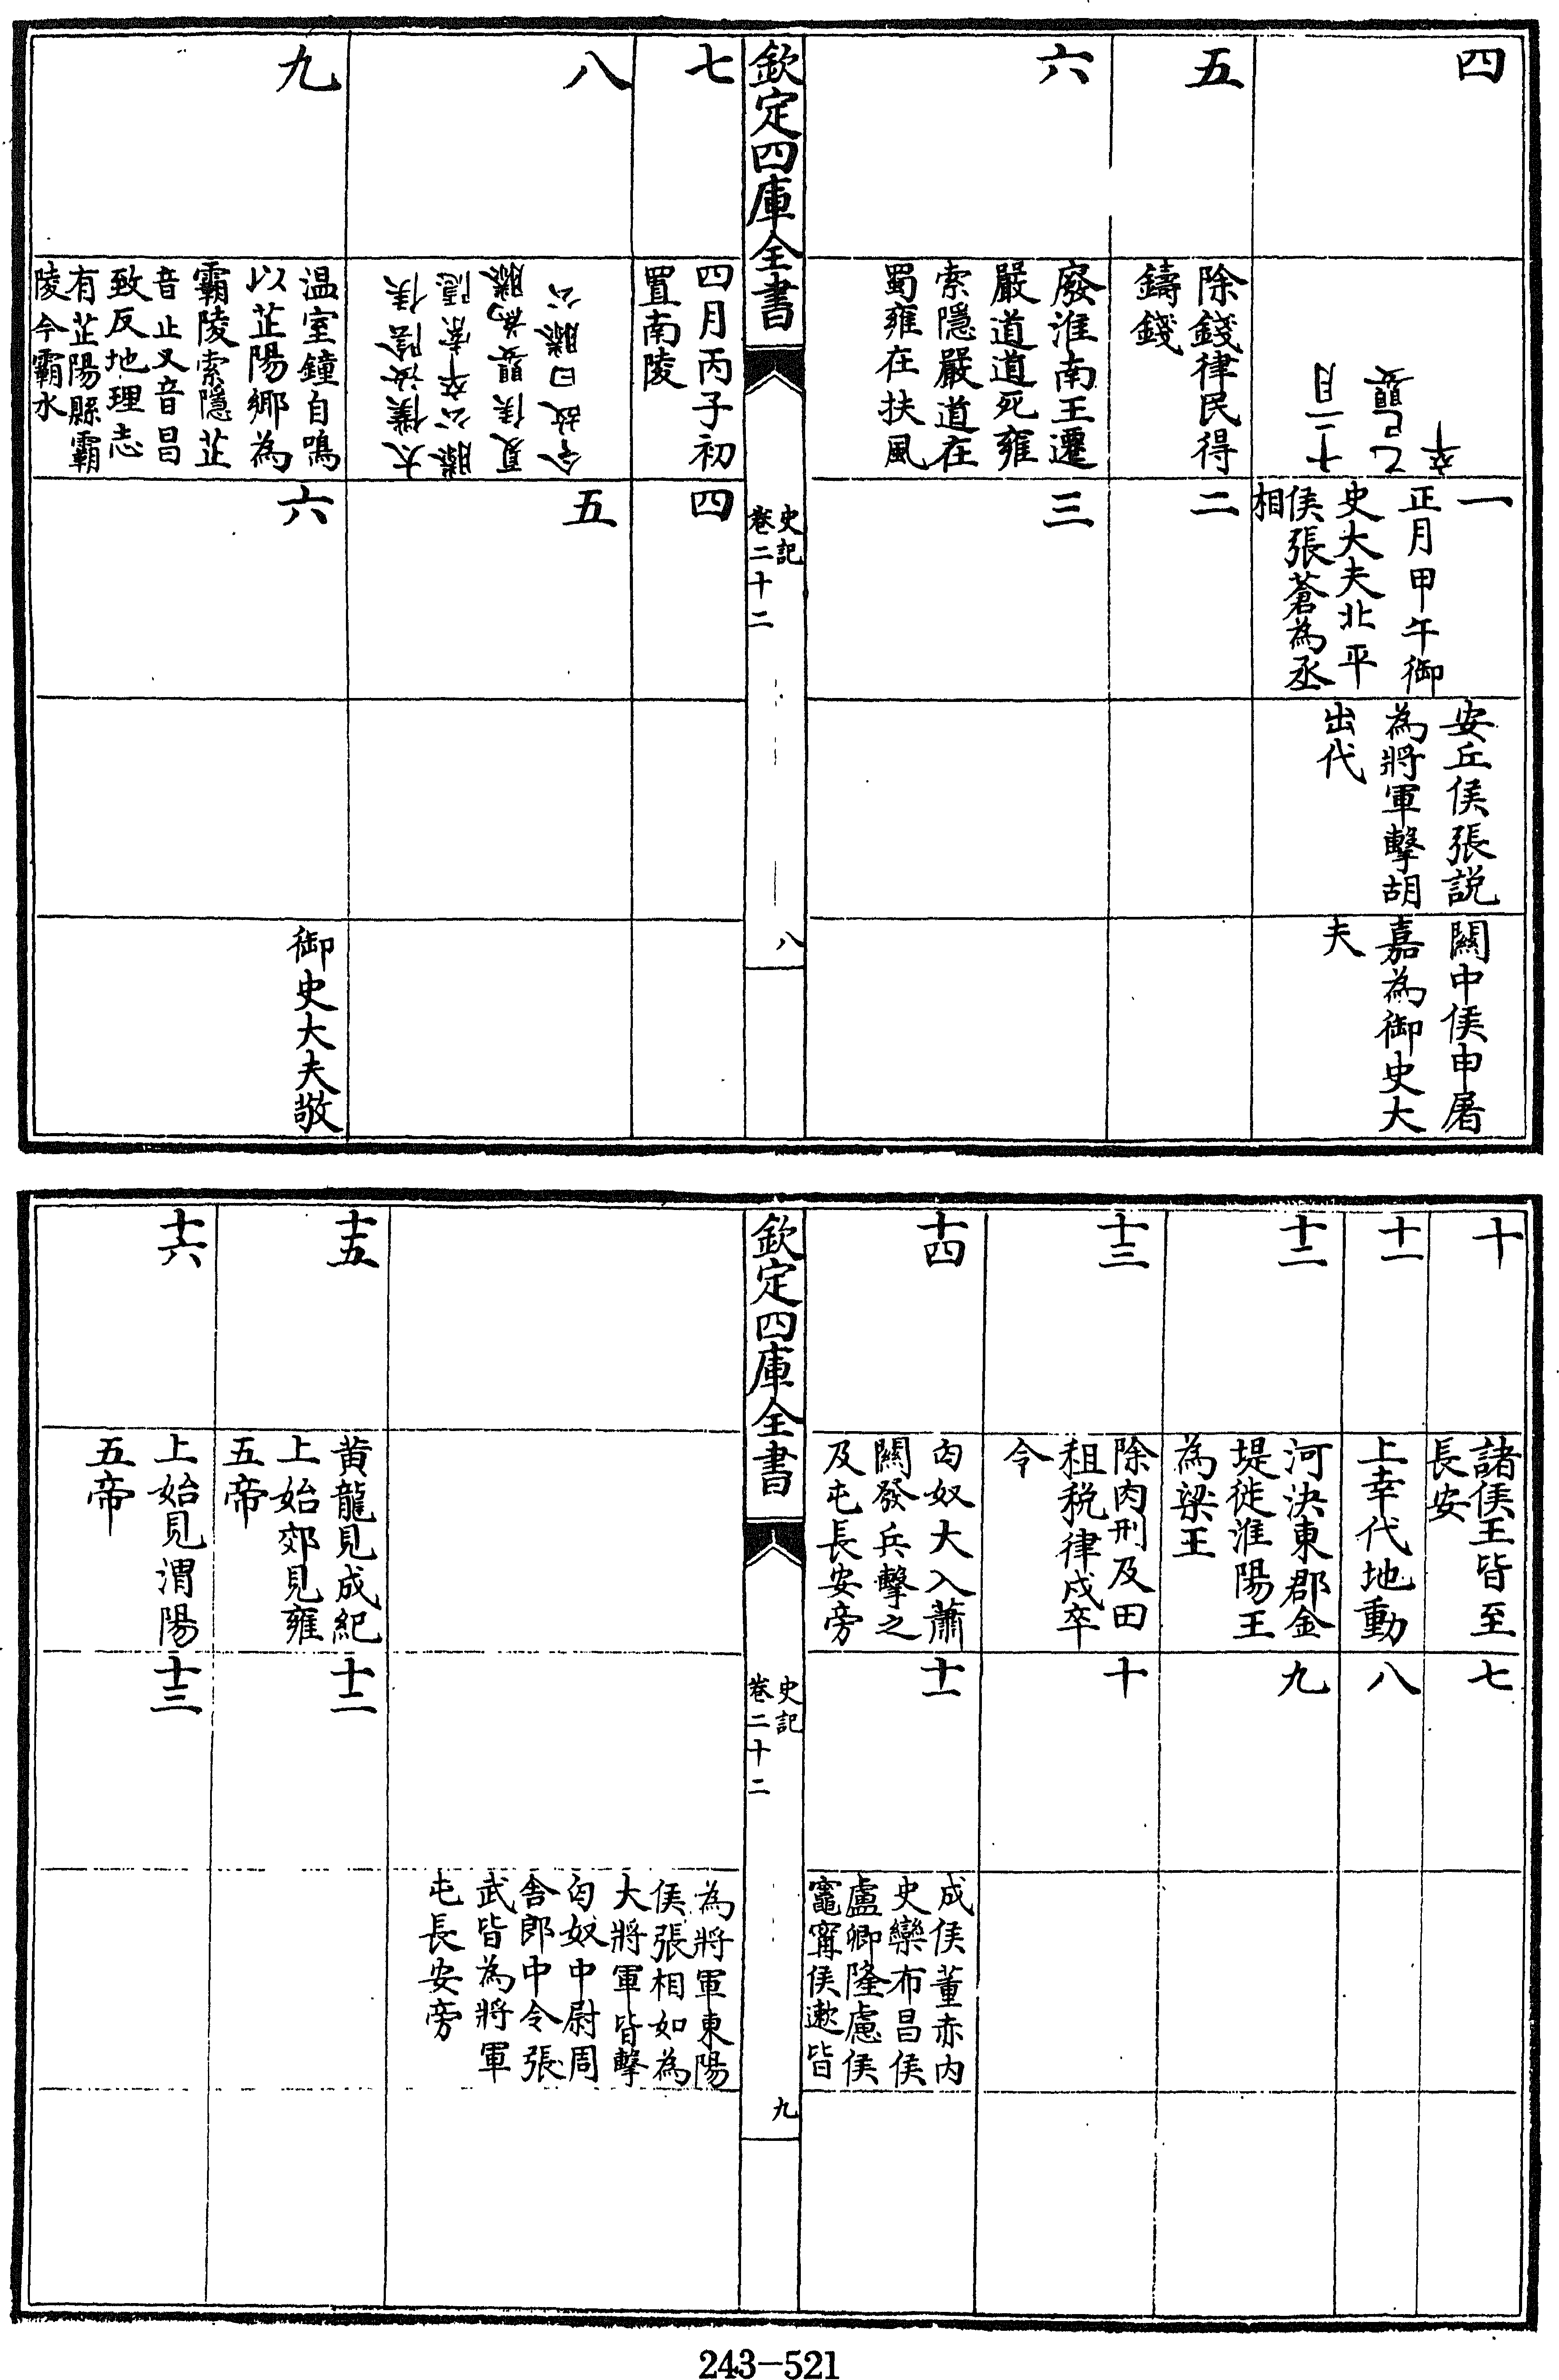 四
十二月
乙巳嬰
卒
一
正月甲午御
史大夫北平
侯張蒼為丞
相
安丘侯張説
為將軍擊胡
出代
關中侯申屠
嘉為御史大
夫
五
除錢律民得
鑄錢
二
六
廢淮南王遷
嚴道道死雍
索隱嚴道在
蜀雍在扶風
三
欽定四庫全書
史記
卷二十二
八
七
四月丙子初
置南陵
四
八
太僕汝陰侯
滕公卒索隱
夏侯嬰為滕
令故曰滕公
五
九
温室鐘自鳴
以芷陽鄉為
霸陵索隱芷
音止又音昌
致反地理志
有芷陽縣霸
陵今霸水
六
御史大夫敬
十
諸侯王皆至
長安
七
十一
上幸代地動
八
十二
河決東郡金
堤徙淮陽王
為梁王
九
十三
除肉刑及田
租税律戍卒
令
十
十四
匈奴大入蕭
關發兵擊之
及屯長安旁
十一
成侯董赤内
史欒布昌侯
盧卿隆慮侯
竈甯侯遬皆
欽定四庫全書
史記
卷二十二
九
為將軍東陽
侯張相如為
大將軍皆擊
匈奴中尉周
舍郎中令張
武皆為將軍
屯長安旁
十五
黄龍見成紀
上始郊見雍
五帝
十二
十六
上始見渭陽
五帝
十三
243-521